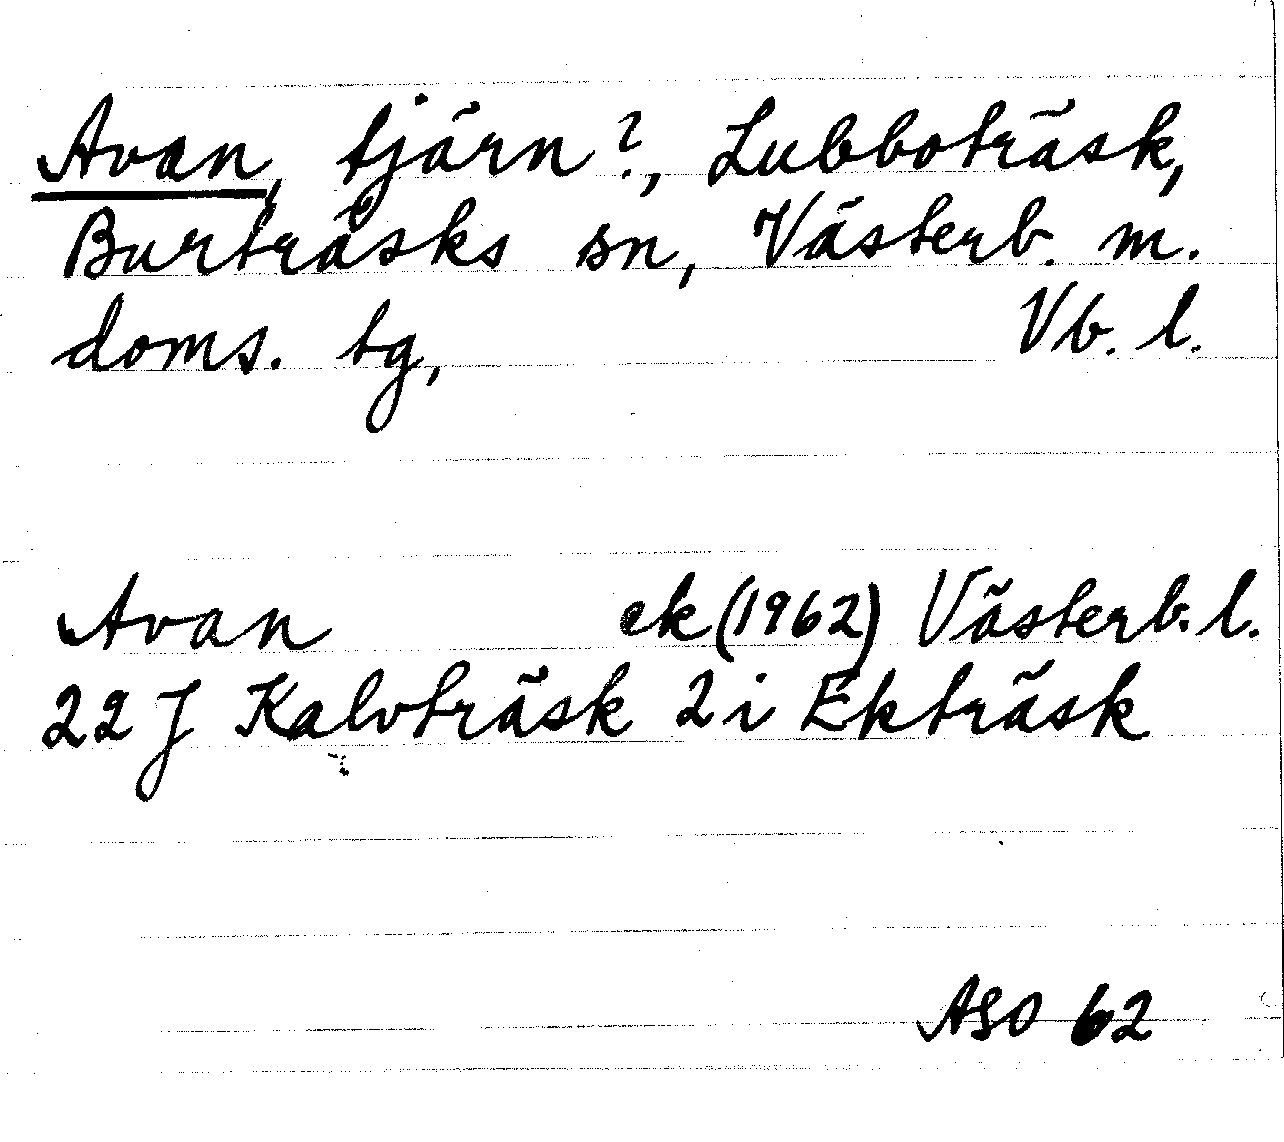 Avan, tjärn?, Lubboträsk,
Burträsks sn, Västerb. m.
doms. tg, Vb. l.
Avan ek (1962) Västerb. l.
22 J Kalvträsk 2 i Ekträsk
ASO 62